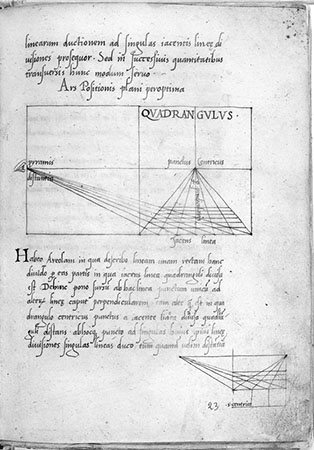 linearum ductionem ad singulas iacentis lineę di
uisiones prosequor. Sed in successiuis quantitatibus
transuersis hunc modum seruo
Ars Positionis plani peroptima
QUADRANGULUS.
pyramis
distantię
punctus Centricus
Iacens linea
Habeo Areolam in qua describo lineam unam rectam hanc
diuido p eas partis in qua iacens linea quadranguli diuisa
est Dehinc pono sursu ab hac linea punctum unicu ad
alterũ lineę caput perpendicularem tam alte q̃ est in qua
drangulo centricus punctus a iacente linea
distans abhocq puncto ad singulas huius lineę
diuisiones singulas lineas duco tum quantã uelim distantia
23
s. centric